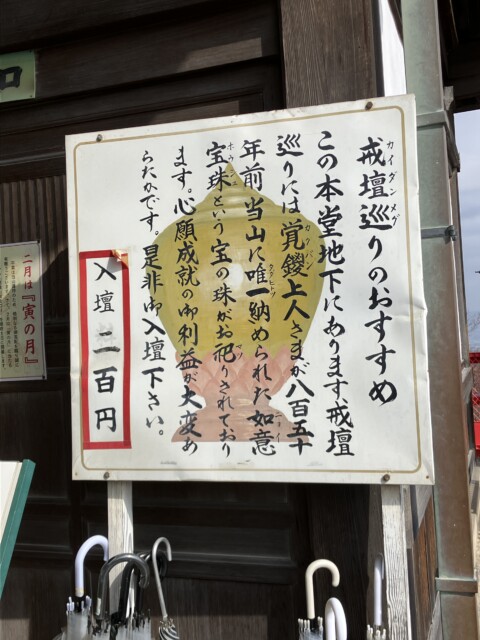 戒壇巡りのおすすめ
カイダンメグ
この本堂地下にあります戒壇
巡りには覚鑁上人さまが八百五十
カクバン
年前当山に唯一納められた如意
タダヒトツ
宝珠という宝の珠がお祀りされており
ホウジュ
マツ
ます。心願成就の御利益が大変あ
らたかです。是非御入壇下さい。
入壇 二百円
二月は『寅の月』